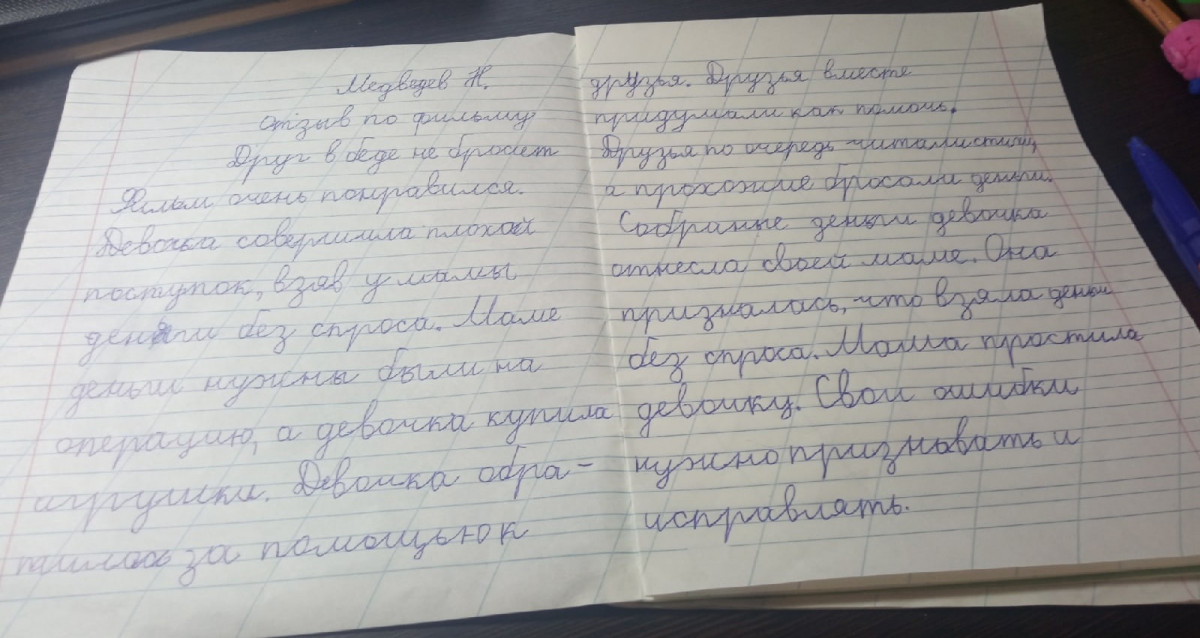 Медведев Н.
Отзыв по фильму
Друг в беде не бросит
Фильм очень понравился.
Девочка совершила плохой
поступок, взяв у мамы
деньги без спроса. Маме
деньги нужны были на
операцию, а девочка купила
игрушки. Девочка обра-
тилась за помощью к
друзья. Друзья вместе
придумали как помочь.
Друзья по очередь читали стихи,
а прохожие бросали деньги.
Собраные деньги девочка
отнесла своей маме. Она
призналась, что взяла деньги
без спроса. Мама простила
девочку. Свои ошибки
нужно признавать и
исправлять.